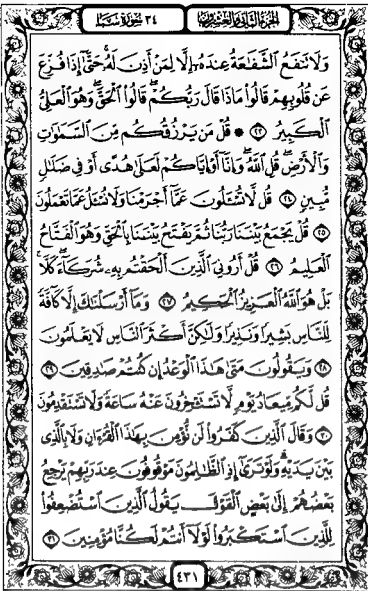 الجزء الثاني والعشرون
٣٤ سورة سبأ
وَلَا تَنفَعُ الشَّفَاعَةُ عِندَهُ إِلَّا لِمَنْ أَذِنَ لَهُ حَتَّىٰ إِذَا فُزِّعَ
عَن قُلُوبِهِمْ قَالُوا مَاذَا قَالَ رَبُّكُمْ قَالُوا الْحَقَّ وَهُوَ الْعَلِيُّ
الْكَبِيرُ ٢٣ * قُلْ مَن يَرْزُقُكُم مِّنَ السَّمَاوَاتِ
وَالْأَرْضِ قُلِ اللَّهُ وَإِنَّا أَوْ إِيَّاكُمْ لَعَلَىٰ هُدًى أَوْ فِي ضَلَالٍ
مُّبِينٍ ٢٤ قُل لَّا تُسْأَلُونَ عَمَّا أَجْرَمْنَا وَلَا نُسْأَلُ عَمَّا تَعْمَلُونَ
٢٥ قُلْ يَجْمَعُ بَيْنَنَا رَبُّنَا ثُمَّ يَفْتَحُ بَيْنَنَا بِالْحَقِّ وَهُوَ الْفَتَّاحُ
الْعَلِيمُ ٢٦ قُلْ أَرُونِيَ الَّذِينَ أَلْحَقْتُم بِهِ شُرَكَاءَ كَلَّا
بَلْ هُوَ اللَّهُ الْعَزِيزُ الْحَكِيمُ ٢٧ وَمَا أَرْسَلْنَاكَ إِلَّا كَافَّةً
لِّلنَّاسِ بَشِيرًا وَنَذِيرًا وَلَٰكِنَّ أَكْثَرَ النَّاسِ لَا يَعْلَمُونَ
٢٨ وَيَقُولُونَ مَتَىٰ هَٰذَا الْوَعْدُ إِن كُنتُمْ صَادِقِينَ ٢٩
قُل لَّكُم مِّيعَادُ يَوْمٍ لَّا تَسْتَأْخِرُونَ عَنْهُ سَاعَةً وَلَا تَسْتَقْدِمُونَ
٣٠ وَقَالَ الَّذِينَ كَفَرُوا لَن نُّؤْمِنَ بِهَٰذَا الْقُرْآنِ وَلَا بِالَّذِي
بَيْنَ يَدَيْهِ وَلَوْ تَرَىٰ إِذِ الظَّالِمُونَ مَوْقُوفُونَ عِندَ رَبِّهِمْ يَرْجِعُ
بَعْضُهُمْ إِلَىٰ بَعْضٍ الْقَوْلَ يَقُولُ الَّذِينَ اسْتُضْعِفُوا
لِلَّذِينَ اسْتَكْبَرُوا لَوْلَا أَنتُمْ لَكُنَّا مُؤْمِنِينَ ٣١
٤٣١